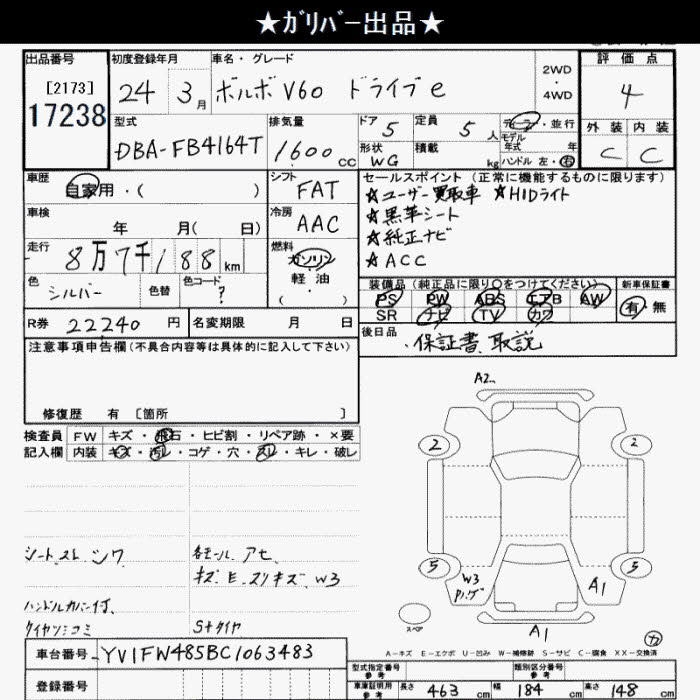 ★ｶﾞﾘﾊﾞｰ出品★
出品番号 初度登録年月 車名・グレード 評価点
[2173] 24 3月 ボルボ V60 ドライブe 2WD・4WD 4
17238
型式 排気量 ドア 定員 ディーラー・並行 外装 内装
DBA-FB4164T 1600cc 5 5人 モデル年式 年 C C
形状 WG 積載 kg ハンドル 左・右
車歴 自家用・( ) シフト FAT
セールスポイント(正常に機能するものに限ります)
☆ユーザー買取車 ☆HIDライト
☆黒革シート
☆純正ナビ
☆ACC
車検 年 月( 日) 冷房 AAC
走行 8万7千188km 燃料 ガソリン
軽油
( ・ )
色 シルバー 色替 色コード ?
装備品(純正品に限り○をつけてください) 新車保証書
PS PW ABS エアB AW 有・無
SR ナビ TV カワ
R券 22240円 名変期限 月 日
後日品 ・保証書、取説
注意事項申告欄(不具合内容等は具体的に記入して下さい)
修復歴 有 [箇所 ]
検査員 FW キズ・飛石・ヒビ割・リペア跡・×要
記入欄 内装 キズ・汚レ・コゲ・穴・スレ・キレ・破レ
A2
2 2
5 5
W3
A1
A1
スペア
シートスレ シワ 各モール アセ
キズ E スリキズ W3
ハンドルカバー付、
S+タイヤ
A-キズ E-エクボ U-凹み W-補修跡 S-サビ C-腐食 XX-交換済
車台番号 YV1FW485BC1063483
登録番号
型式指定番号 参考 類別区分番号 参考
車庫証明用 参考 長さ 463cm 幅 184cm 高さ 148cm